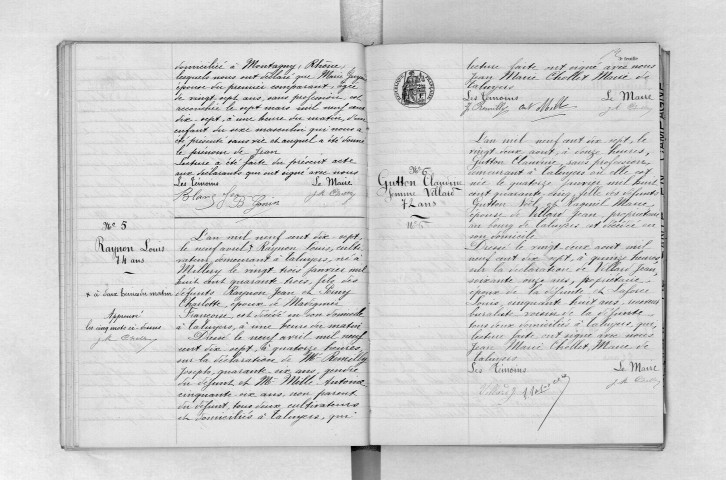 domicilié à Montagny, Rhône,
lesquels nous ont déclaré que Marie
épouse du premier comparant, âgée
de vingt sept ans, sans profession, est
accouchée le sept mars mil neuf cent
dix sept, à une heure du matin, d'un
enfant du sexe masculin que nous a
été présenté sans vie et auquel a été donné
le prénom de Jean
Lecture a été faite du présent acte
aux déclarants qui ont signé avec nous
Les témoins Le Maire
N° 5
Raynon Louis
74 ans
à une heure du matin
Approuvé
les cinq mots ci-dessus
L'an mil neuf cent dix sept,
le neuf avril, Raynon Louis, culti-
vateur demeurant à Taluyers, né à
le vingt trois janvier mil
huit cent quarante trois, fils des
défunts Raynon Jean et
Charlotte, époux de
Françoise, est décédé en son domicile
à Taluyers, à une heure du matin
Dressé le neuf avril mil neuf
cent dix sept, à quatorze heures,
sur la déclaration de Mr
Joseph, quarante six ans, gendre
du défunt et Mr Antoine
cinquante six ans, non parent
du défunt, tous deux cultivateurs
et domiciliés à Taluyers, qui
lecture faite ont signé avec nous
Jean Marie Chollet Maire de
Taluyers
Les témoins Le Maire
N° 6
Gutton Claudine
femme Villard
72 ans
N° 6
L'an mil neuf cent dix sept, le
vingt deux août, à onze heures,
Gutton Claudine, sans profession,
demeurant à Taluyers où elle est
née le quatorze janvier mil huit
cent quarante cinq, fille des défunts
Gutton et Marie,
épouse de Villard Jean, propriétaire
au bourg de Taluyers est décédée en
son domicile
Dressé le vingt deux août mil
neuf cent dix sept, à quinze heures
sur la déclaration de Villard Jean,
soixante onze ans, propriétaire,
époux de la défunte et
Louis, cinquante huit ans,
buraliste, voisin de la défunte
tous deux domiciliés à Taluyers que,
lecture faite ont signé avec nous
Jean Marie Chollet, Maire de
Taluyers
Les témoins Le Maire